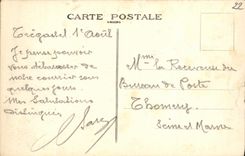 22
CARTE POSTALE
Trégastel 1er Août
Je pense pouvoir
vous débarrasser de
notre courrier sous
quelques jours.
Mes Salutations
distinguées
Mme la Receveuse du
Bureau de Poste
Thomery
Seine et Marne